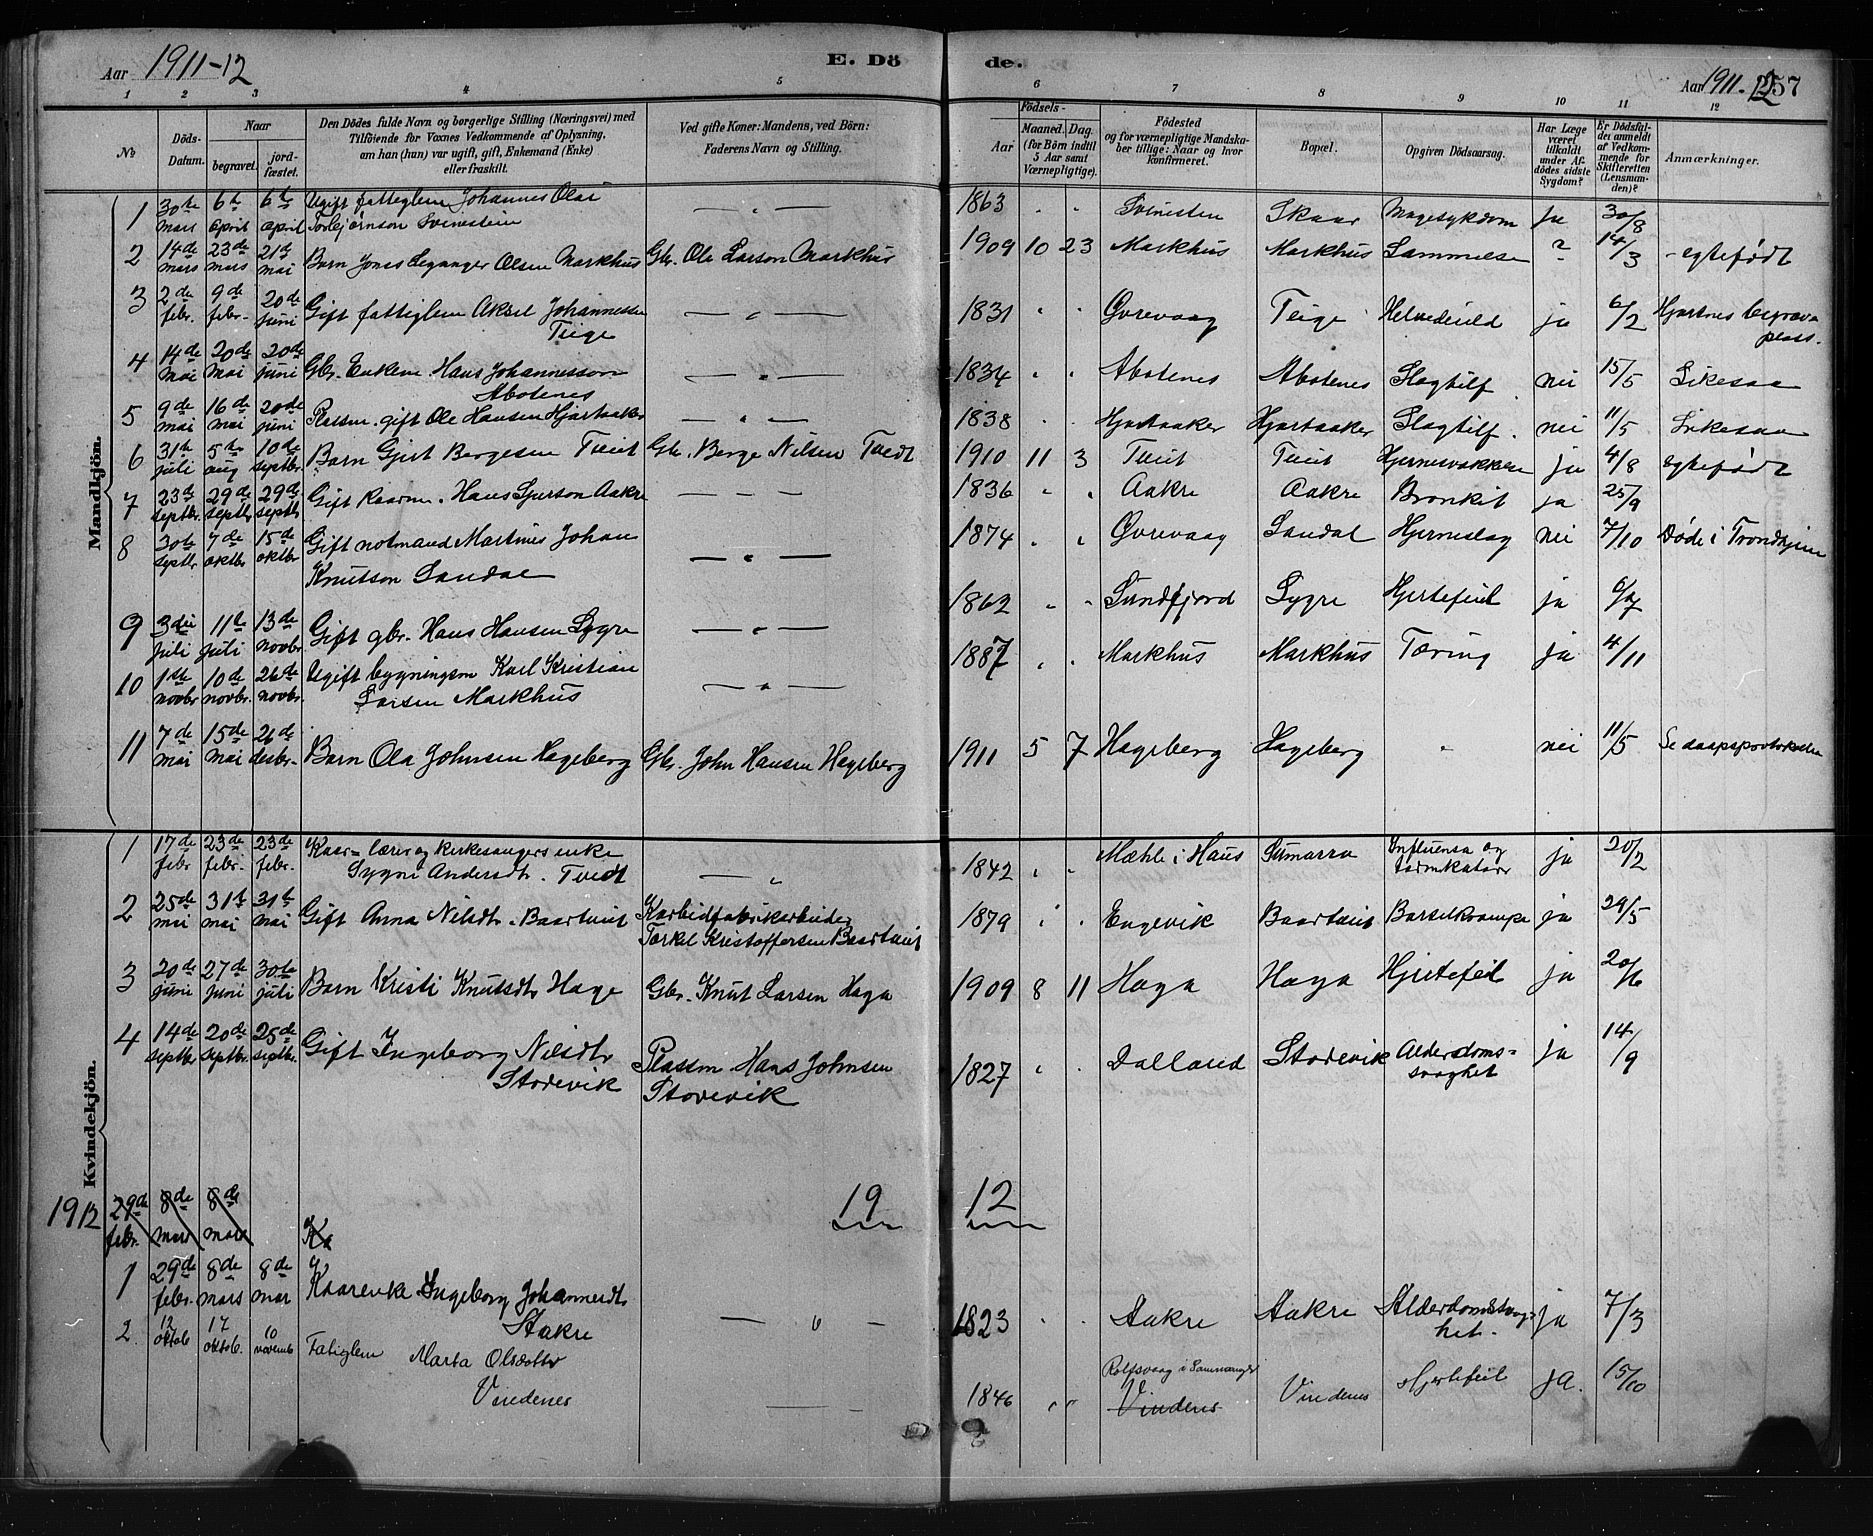 Aar 1911-12 E. Dö de. Aar 1911-12 257
1 2 3 4 5 6 7 8 9 10 11 12
№ Döds-Datum. Naar begravet. jord-fæstet. Den Dödes fulde Navn og borgerlige Stilling (Næringsvei) med Tilföiende for Voxnes Vedkommende af Oplysning, om han (hun) var ugift, gift, Enkemand (Enke) eller fraskilt. Ved gifte Koner: Mandens, ved Börn: Faderens Navn og Stilling. Födsels- Aar Maaned. Dag. (for Börn indtil 5 Aar samt Værnepligtige). Födested og for værnepligtige Mandskaber tillige: Naar og hvor konfirmeret. Bopæl. Opgiven Dödsaarsag. Har Læge været tilkaldt under Afdödes sidste Sygdom? Er Dödsfaldet anmeldt af Vedkommende for Skifteretten (Lensmanden)? Anmærkninger.
Mandkjön.
1 30te mars 6te april 6te april Ugift fattiglem Johannes Olai
Torbjørnson Svinestein — " — 1863 " " Svinesten Skaar Magesykdom ja 30/8
2 14de mars 23de mars 21de mai Barn Jonas Leganger Olsen Markhus Gbr. Ole Larson Markhus 1909 10 23 Markhus Markhus ? 14/3 - egtefødt
3 2de febr. 9de febr. 20de juni Gift fattiglem Aksel Johannessen
Teige — " — 1831 " " Øvrevaag Teige Helvedesild ja 6/2 Hjartnes begravplass.
4 14de mai 20de mai 20de juni Gbr. Enkem. Hans Johannesson
Abotenes — " — 1834 " " Abotenes Abotenes Slagtilf. nei 15/5 Likesaa
5 9de mai 16de mai 20de juni Plassm. gift Ole Hansen Hjartaaker — " — 1838 " " Hjartaaker Hjartaaker Slagtilf. nei 11/5 Likesaa
6 31te juli 5te aug 10de septbr. Barn Gjert Bergesen Tveit Gbr. Berge Nilsen Tvedt 1910 11 3 Tveit Tveit ja 4/8 egtefødt
7 23de septbr. 29de septbr. 29de septbr. Gift kaarm. Hans Sjurson Aakre — — — 1836 " " Aakre Aakre Bronkit ja 25/9
8 30te septbr. 7de oktbr. 15de oktbr. Gift notmand Martinus Johan
Knutson Sandal — " — 1874 " " Øvrevaag Sandal Hjerneslag nei 7/10 Døde i Trondhjem
9 3die juli 11te juli 13de novbr. Gift gbr. Hans Hansen Lygre — " — 1862 " " Sundfjord Lygre Hjertefeil ja 6/7
10 1ste novbr. 10de novbr. 26de novbr. Ugift bygningssn. Karl Kristian
Larsen Markhus — " — 1887 " " Markhus Markhus Tæring ja 4/11
11 7de mai 15de mai 26de desbr. Barn Ola Johnsen Hageberg Gbr. John Hansen Hageberg 1911 5 7 Hageberg Hageberg " nei 11/5 Se daapsprotokollen
Kvindekjön.
1 17de febr. 23de febr. 23de febr. Kaar- lærer og kirkesangers enke
Sygni Andersdtr. Tvedt — " 1842 " " Mæhle i Haus Gumarra Influensa og tarmkatarr ja 20/2
2 25de mai 31te mai 31te mai Gift Anna Nilsdtr. Baartveit Karbidfabrikarbeider
Torkel Kristoffersen Baartveit 1879 " " Engevik Baartveit Barselkrampe ja 29/5
3 20de juni 27de juni 30te juli Barn Kristi Knutsdtr Haga Gbr. Knut Larsen Haga 1909 8 11 Haga Haga Hjertefeil ja 20/6
4 14de septbr. 20de septbr. 25de septbr. Gift Ingeborg Nilsdtr
Storevik Plassm Hans Johnsen
Storevik 1827 " " Dalland Storevik Alderdoms-svaghet ja 14/9
1912 29de febr. 8de mars 8de mars Ka 19 12
1 29de febr. 8de mars 8de mar Kaarenke Ingeborg Johannesdtr
Aakre — " — 1823 " " Aakre Aakre Alderdomssvaghet. ja 7/3
2 12 oktob. 17 oktob. 10 novemb Fatiglem Marta Olsdotter
Vindenes — — 1846 " " Rolfsvaag i Samnanger
Vindenes Vindenes Hjertefeil ja. 15/10